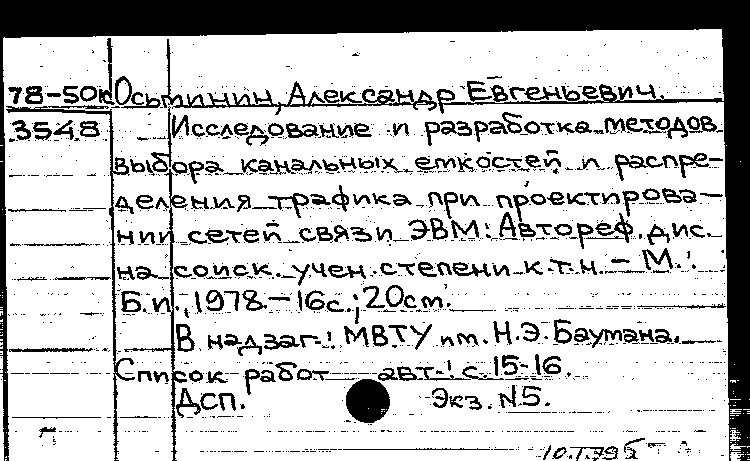 78-50к Осьминин, Александр Евгеньевич.
3548 Исследование и разработка методов
выбора канальных емкостей и распре-
деления трафика при проектирова-
нии сетей связи ЭВМ: Автореф. дис.
на соиск. учен. степени к.т.н. - М.:
Б.и., 1978. - 16с.; 20см.
В надзаг.: МВТУ им. Н.Э. Баумана.
Список работ авт.: с. 15-16.
ДСП. Экз. №5.